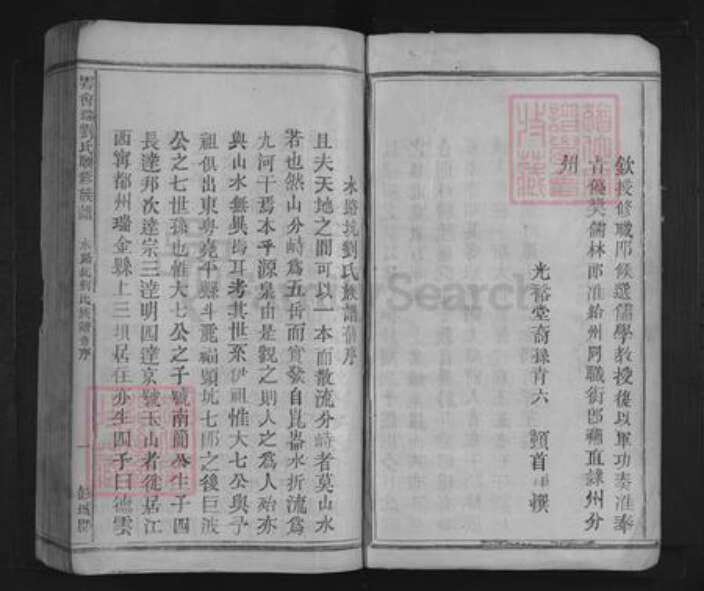 欽授修職郎候選儒學教授後以軍功奏准奉
旨優獎儒林郎准給州同職銜即補直隸州分
州
光裕堂裔孫青六 頴首 撰
水路坑劉氏族譜舊序
且夫天地之間可以一本而散流分峙者莫山水
若也然山分峙為五岳而實發自崑崙水折流為
九河干焉本乎源泉由是觀之則人之為人殆亦
與山水無異 耳考其世系 祖惟大七公與予
祖俱出東粵堯平縣斗 福頭坑七郎之後巨波
公之七世孫也惟大七公之子號南簡公生子四
長達邦次達宗三達明四達京號玉山者徙居江
西寧都州瑞金縣上三坝居住亦生四子曰德雲
雩會瑞劉氏聯修族譜
水路坑劉氏族譜舊序
一
彭城郡
FamilySearch